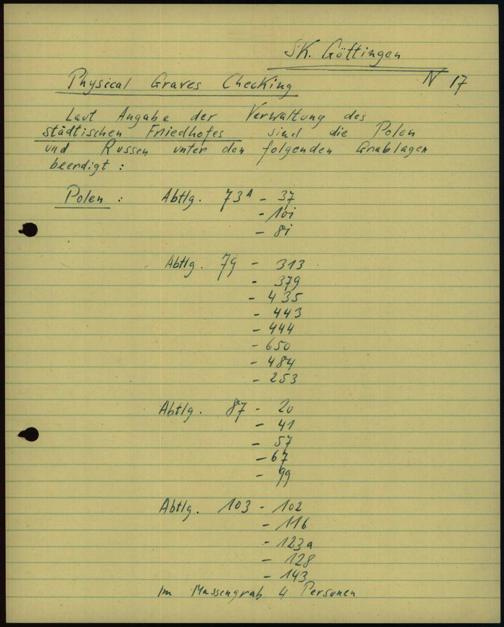 SK. Göttingen
Physical Graves Checking N 17
Laut Angabe der Verwaltung des
städtischen Friedhofes sind die Polen
und Russen unter den folgenden Grablagen
beerdigt :
Polen : Abtlg. 73A - 37
- 10i
- 8i
Abtlg. 79 - 313
- 379
- 435
- 443
- 444
- 650
- 484
- 253
Abtlg. 87 - 20
- 41
- 57
- 67
- 99
Abtlg. 103 - 102
- 116
- 123a
- 128
- 143
Im Massengrab 4 Personen